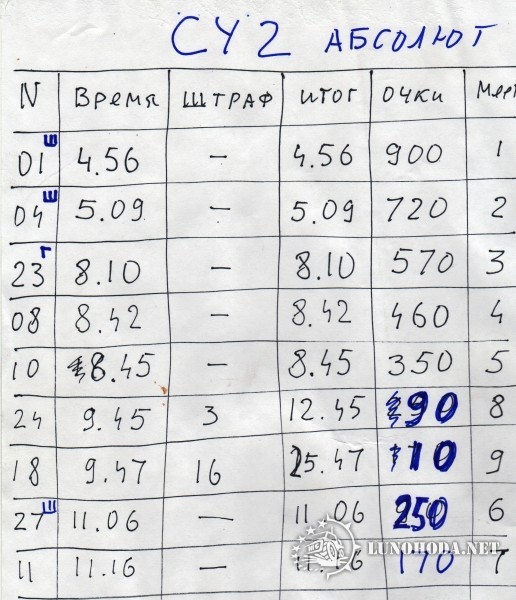 СУ 2 АБСОЛЮТ
N Время ШТРАФ ИТОГ ОЧКИ Мест
01 Ш 4.56 – 4.56 900 1
04 Ш 5.09 – 5.09 720 2
23 Г 8.10 – 8.10 570 3
08 8.42 – 8.42 460 4
10 8.45 – 8.45 350 5
24 9.45 3 12.45 90 8
18 9.47 16 25.47 10 9
27 Ш 11.06 – 11.06 250 6
11 11.16 – 11.16 170 7
LUNOHODA.NET